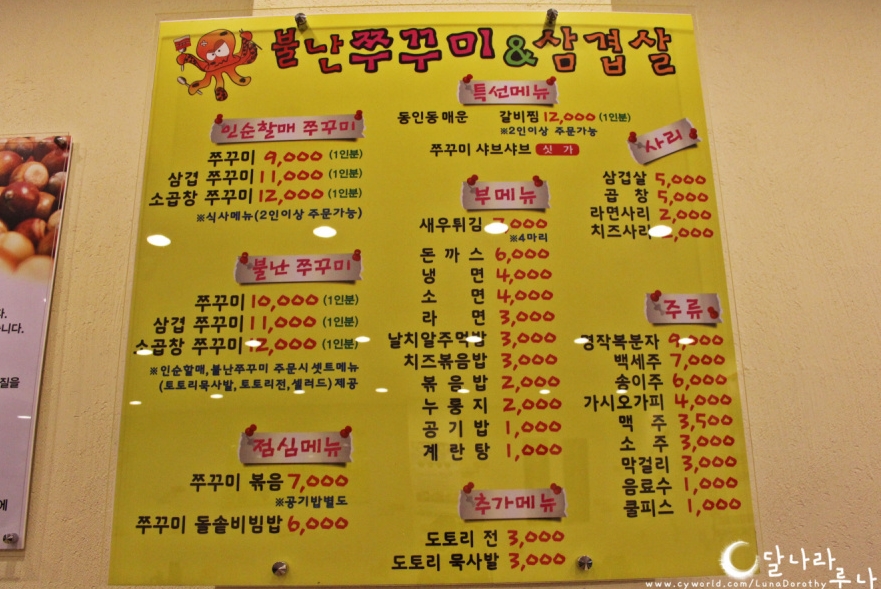 불난쭈꾸미&삼겹살
인순할매 쭈꾸미
쭈꾸미 9,000 (1인분)
삼겹 쭈꾸미 11,000 (1인분)
소곱창 쭈꾸미 12,000 (1인분)
※식사메뉴(2인이상 주문가능)
불난 쭈꾸미
쭈꾸미 10,000 (1인분)
삼겹 쭈꾸미 11,000 (1인분)
소곱창 쭈꾸미 12,000 (1인분)
※인순할매,불난쭈꾸미 주문시 셋트메뉴
(토토리묵사발,토토리전,샐러드) 제공
점심메뉴
쭈꾸미 볶음 7,000
※공기밥별도
쭈꾸미 돌솥비빔밥 6,000
특선메뉴
동인동매운 갈비찜 12,000 (1인분)
※2인이상 주문가능
쭈꾸미 샤브샤브 싯가
부메뉴
새우튀김 ,000
※4마리
돈까스 6,000
냉면 4,000
소면 4,000
라면 3,000
날치알주먹밥 3,000
치즈볶음밥 3,000
볶음밥 2,000
누룽지 2,000
공기밥 1,000
계란탕 1,000
추가메뉴
도토리 전 3,000
도토리 묵사발 3,000
사리
삼겹살 5,000
곱창 5,000
라면사리 2,000
치즈사리 ,000
주류
경작복분자 9,000
백세주 7,000
송이주 6,000
가시오가피 4,000
맥주 3,500
소주 3,000
막걸리 3,000
음료수 1,000
쿨피스 1,000
다.
니다.
질을
에
달나라
루나
www.cyworld.com/LunaDorothy